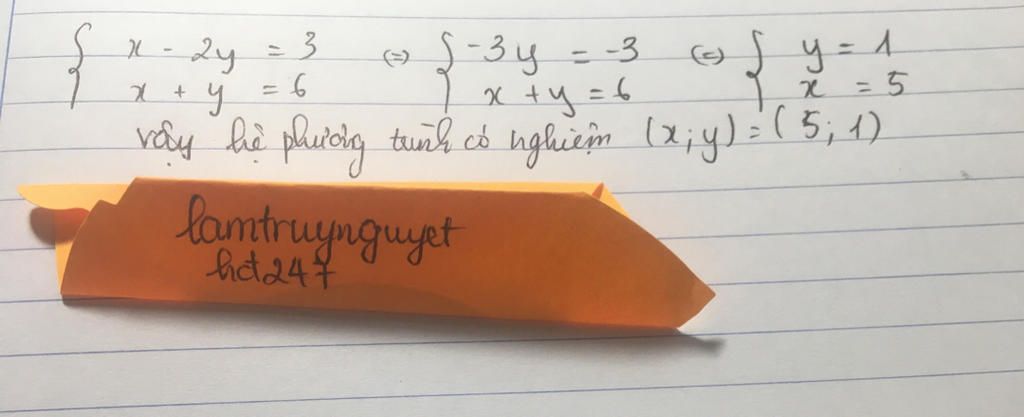 { x - 2y = 3 (=) { -3y = -3 (=) { y = 1
x + y = 6 x + y = 6 x = 5
vậy hệ phương trình có nghiệm (x; y) = (5; 1)
lamtruynguyet
hct247